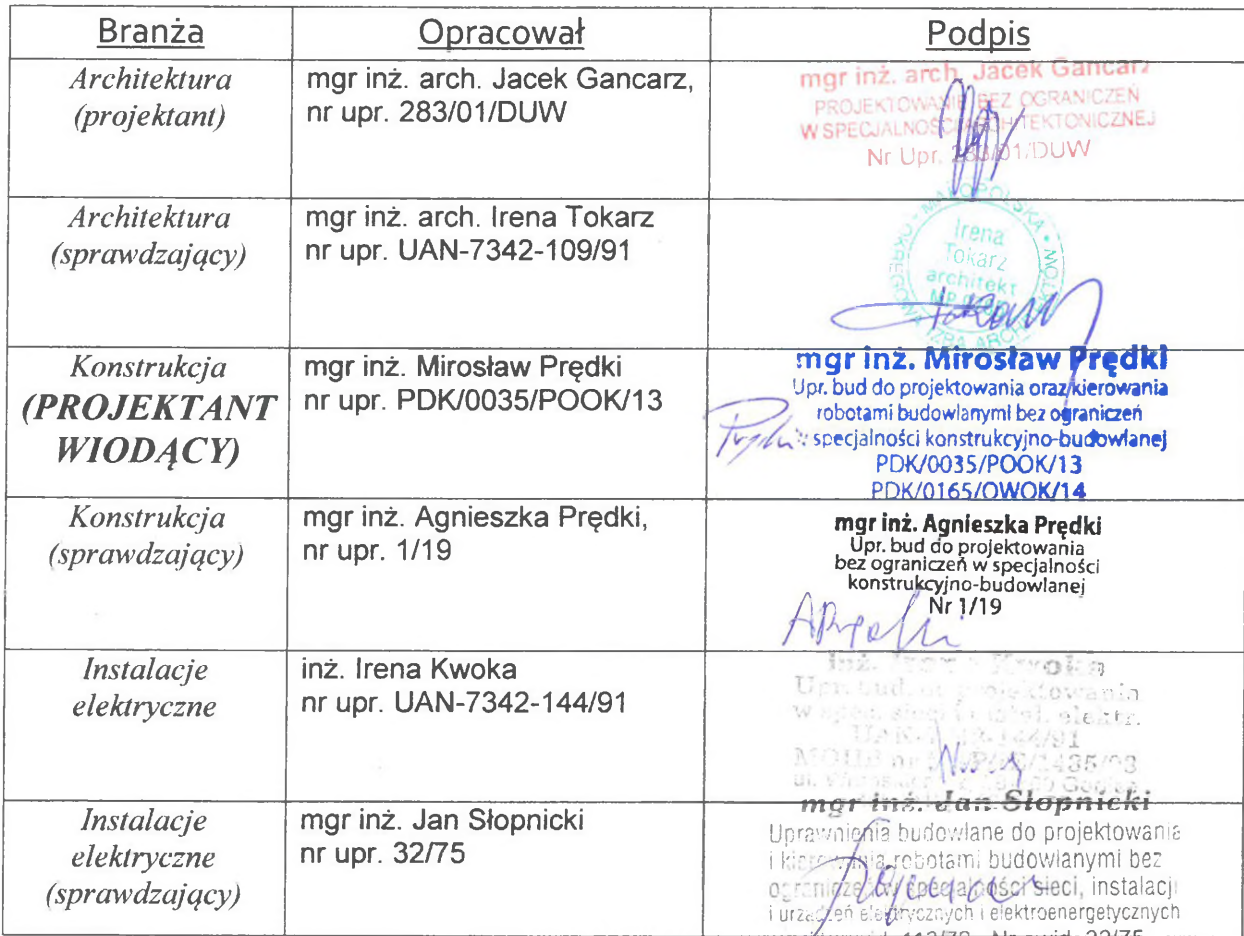 Branża
Opracował
Podpis
Architektura
(projektant)
mgr inż. arch. Jacek Gancarz,
nr upr. 283/01/DUW
mgr inż. arch. Jacek Gancarz
PROJEKTOWANIE BEZ OGRANICZEŃ
W SPECJALNOŚCI ARCHITEKTONICZNEJ
Nr Upr. 283/01/DUW
Architektura
(sprawdzający)
mgr inż. arch. Irena Tokarz
nr upr. UAN-7342-109/91
Irena
Tokarz
architekt
Konstrukcja
(PROJEKTANT
WIODĄCY)
mgr inż. Mirosław Prędki
nr upr. PDK/0035/POOK/13
mgr inż. Mirosław Prędki
Upr. bud do projektowania oraz kierowania
robotami budowlanymi bez ograniczeń
specjalności konstrukcyjno-budowlanej
PDK/0035/POOK/13
PDK/0165/OWOK/14
Konstrukcja
(sprawdzający)
mgr inż. Agnieszka Prędki,
nr upr. 1/19
mgr inż. Agnieszka Prędki
Upr. bud do projektowania
bez ograniczeń w specjalności
konstrukcyjno-budowlanej
Nr 1/19
APrędki
Instalacje
elektryczne
inż. Irena Kwoka
nr upr. UAN-7342-144/91
inż. Irena Kwoka
Upr. bud. projektowania
w spec. sieci i instal. elektr.
Instalacje
elektryczne
(sprawdzający)
mgr inż. Jan Słopnicki
nr upr. 32/75
mgr inż. Jan Słopnicki
Uprawnienia budowlane do projektowania
i kierowania robotami budowlanymi bez
ograniczeń w specjalności sieci, instalacji
i urządzeń elektrycznych i elektroenergetycznych